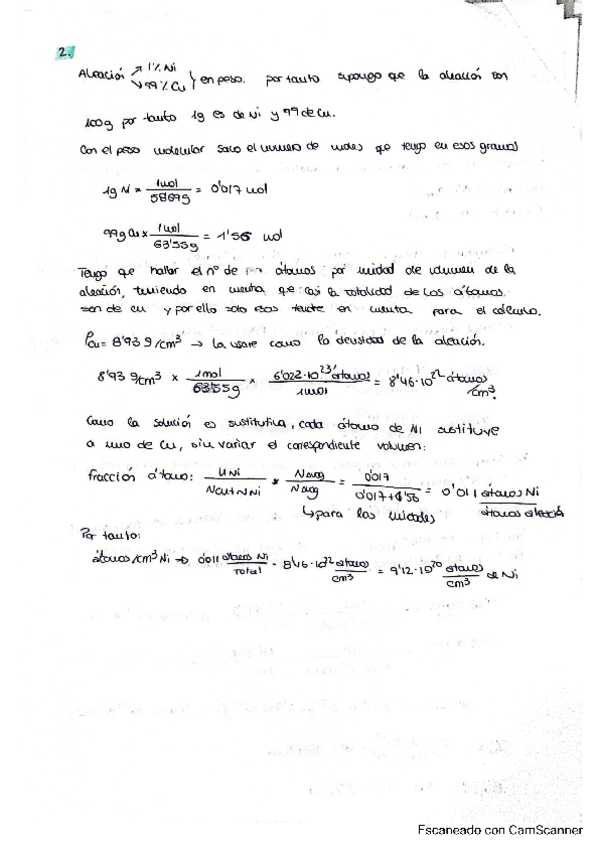 2.
Aleación → 1% Ni ↘ 99% Cu } en peso. por tanto supongo que la aleación son
100g por tanto 1g es de Ni y 99 de Cu.
Con el peso molecular saco el numero de moles que tengo en esos gramos
1g N × 1mol / 58'69g = 0'017 mol
99g Cu × 1mol / 63'55g = 1'56 mol
Tengo que hallar el nº de átomos por unidad de volumen de la
aleación, teniendo en cuenta que casi la totalidad de los átomos
son de cu y por ello solo esos tendré en cuenta para el cálculo.
ρcu = 8'93 g/cm³ → la usare como la densidad de la aleación.
8'93 g/cm³ × 1mol / 63'55g × 6'022·10²³ átomos / 1mol = 8'46·10²² átomos/cm³.
Como la solución es sustitutiva, cada átomo de Ni sustituye
a uno de Cu, sin variar el correspondiente volumen:
fracción átomo: UNi / NCu+NNi × Navog / Navog = 0'017 / 0'017+1'56 = 0'011 átomos Ni / átomos aleación
↳ para las unidades
Por tanto:
átomos/cm³ Ni → 0'011 átomos Ni / Total · 8'46·10²² átomos / cm³ = 9'12·10²⁰ átomos / cm³ de Ni
Escaneado con CamScanner